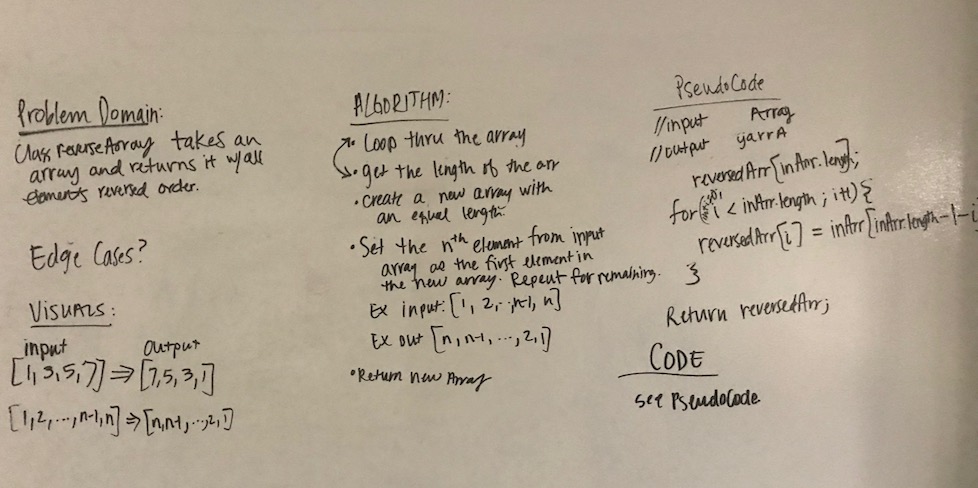 Problem Domain:
Class reverseArray takes an
array and returns it w/all
elements reversed order.
Edge Cases?
VISUALS:
input output
[1,3,5,7] ⇒ [7,5,3,1]
[1,2,...,n-1,n] ⇒ [n,n-1,...,2,1]
ALGORITHM:
• Loop thru the array
• get the length of the arr
• create a new array with
an equal length.
• Set the nth element from input
array as the first element in
the new array. Repeat for remaining.
Ex input: [1, 2,...,n-1, n]
Ex out [n, n-1, ..., 2,1]
• Return new Array
PseudoCode
//input Array
//output yarrA
reversedArr[inArr.length];
for( i < inArr.length; i++) {
reversedArr[i] = inArr[inArr.length-1-i
}
Return reversedArr;
CODE
see PseudoCode